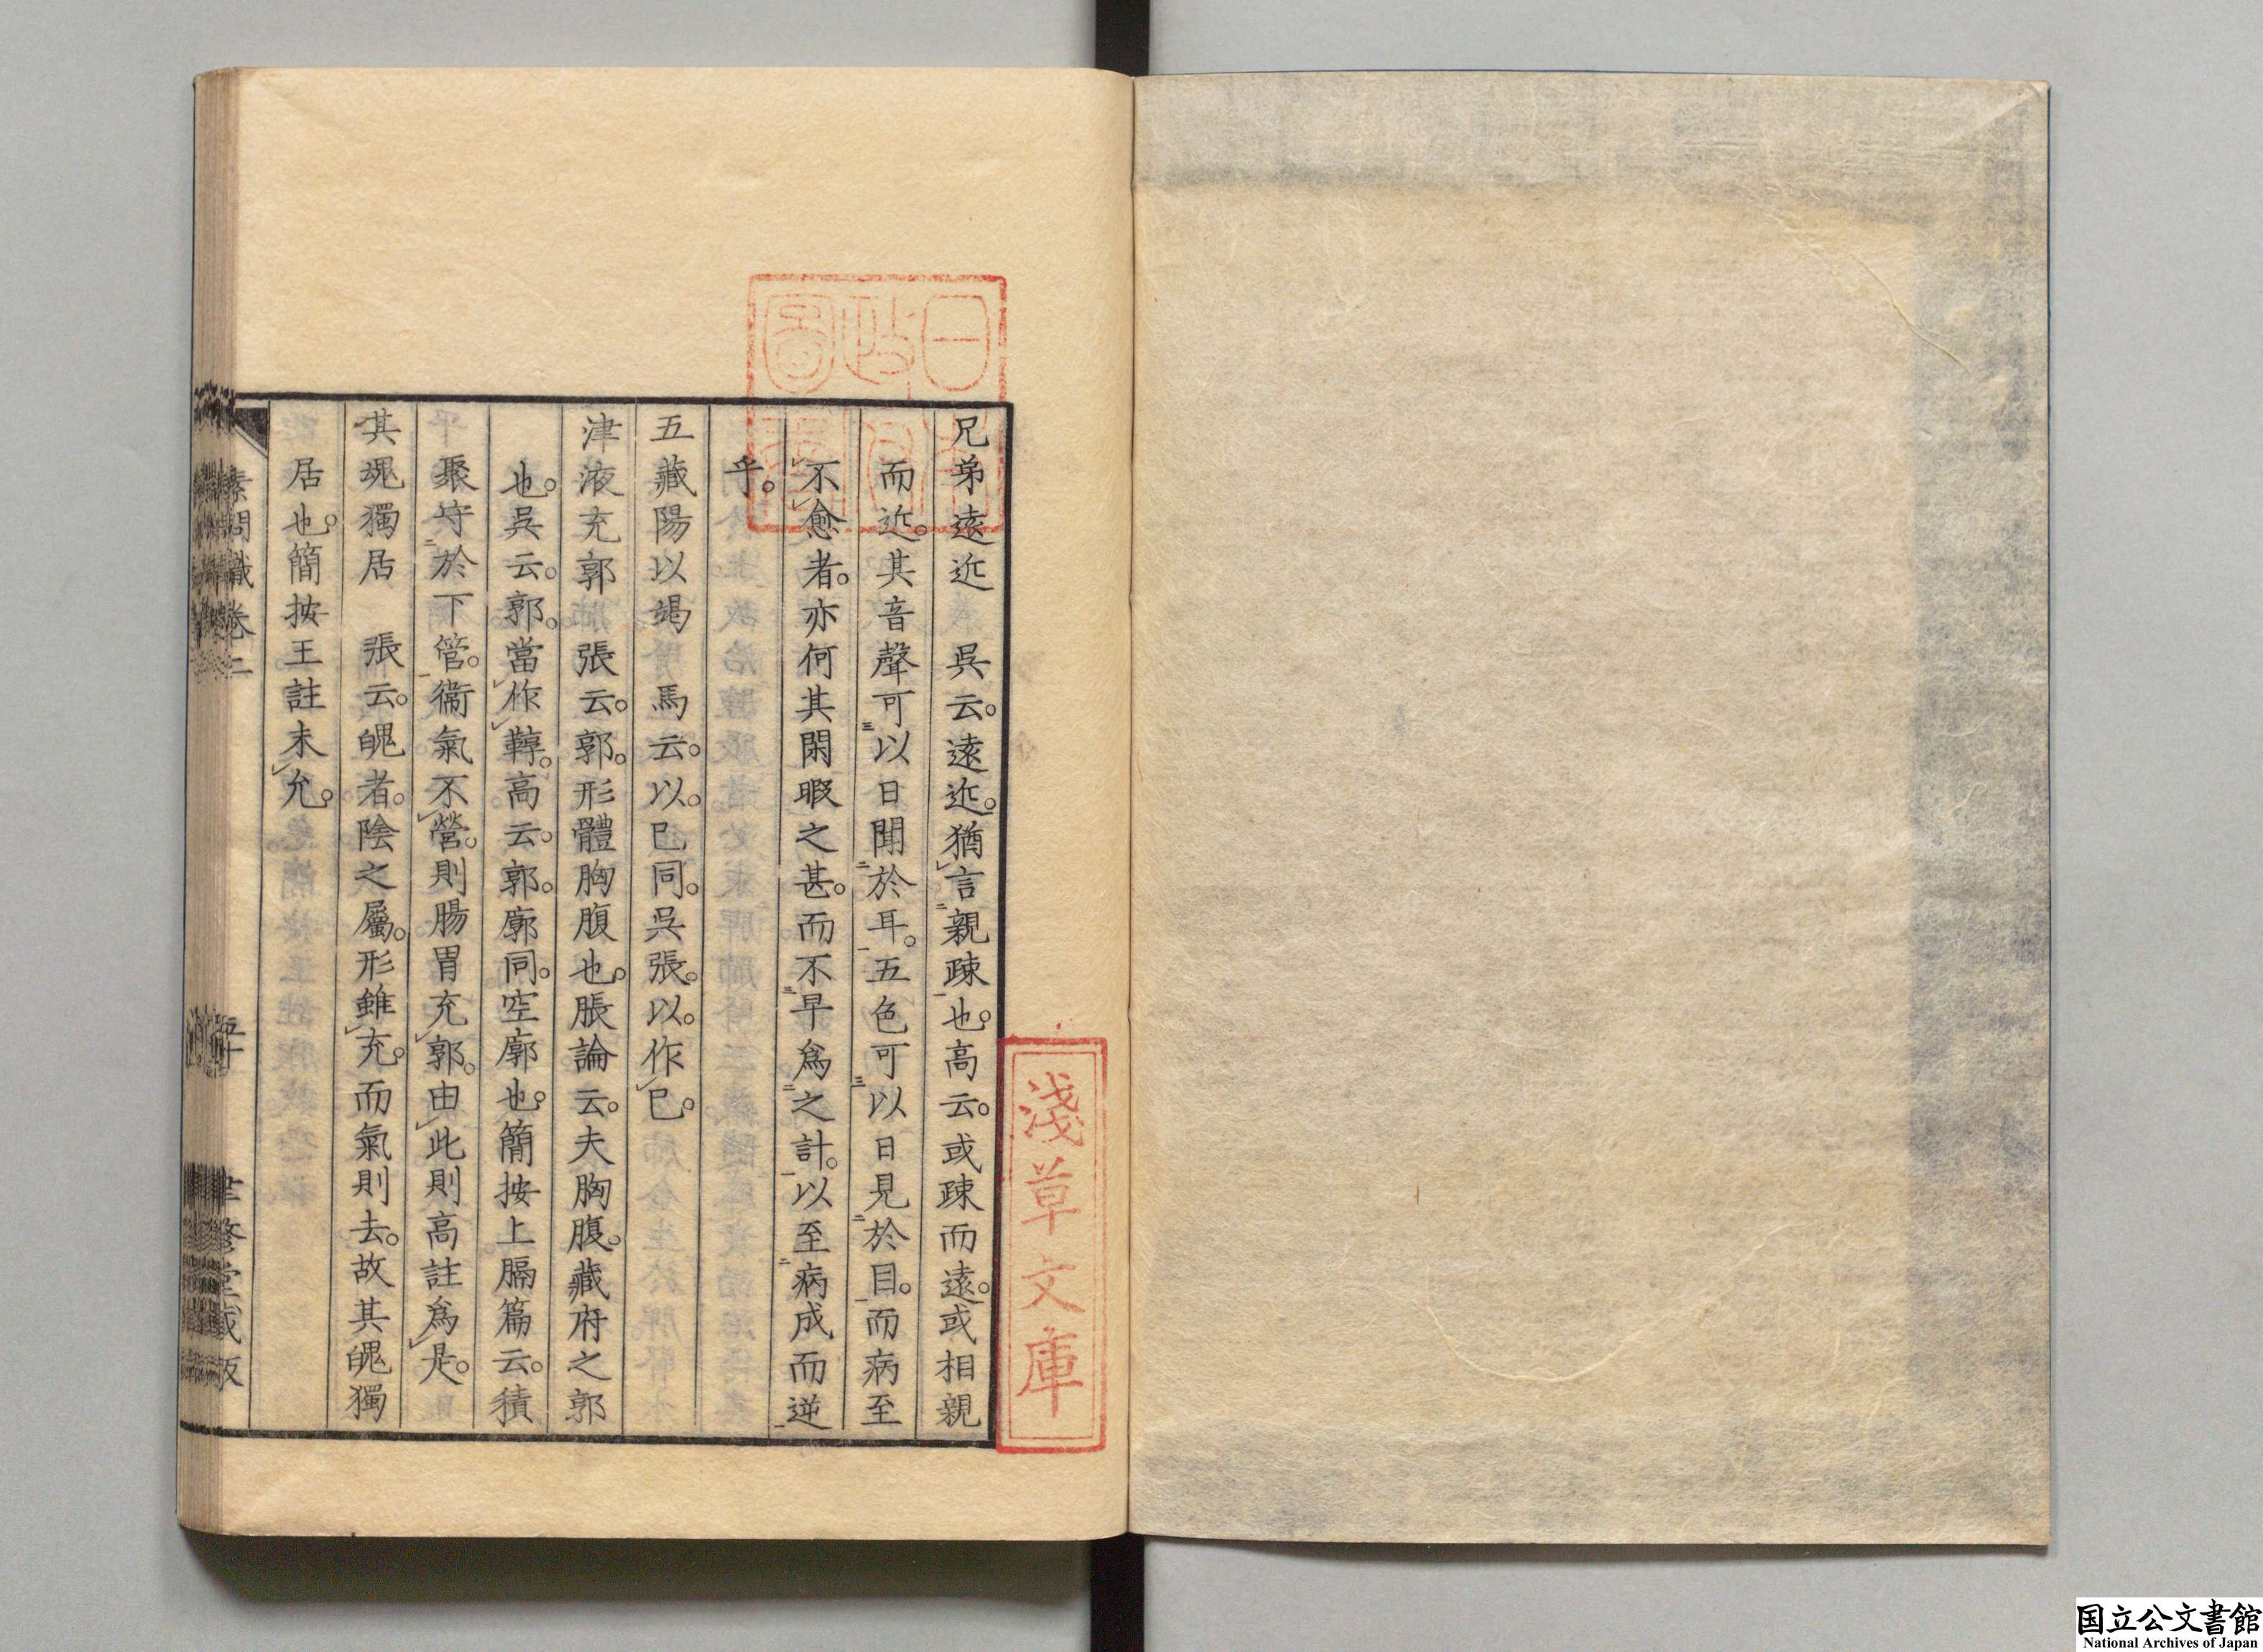 兄弟遠近　吳云。遠近。猶言親疎也。高云。或疎而遠。或相親
而近。其音聲可以日聞於耳。五色可以日見於目。而病至
不愈者。亦何其閑暇之甚。而不早爲之計。以至病成而逆
乎。
五藏陽以竭　馬云。以。已同。吳張。以。作已。
津液充郭　張云。郭。形體胸腹也。脹論云。夫胸腹。藏府之郭
也。吳云。郭。當作鞟。高云。郭。廓同。空廓也。簡按上膈篇云。積
聚守於下管。衞氣不營。則腸胃充郭。由此則高註爲是。
其魄獨居　張云。魄者。陰之屬。形雖充。而氣則去。故其魄獨
居也。簡按王註未允。
素問識卷二
聿修堂藏版
淺草文庫
日本政圖
国立公文書館
National Archives of Japan